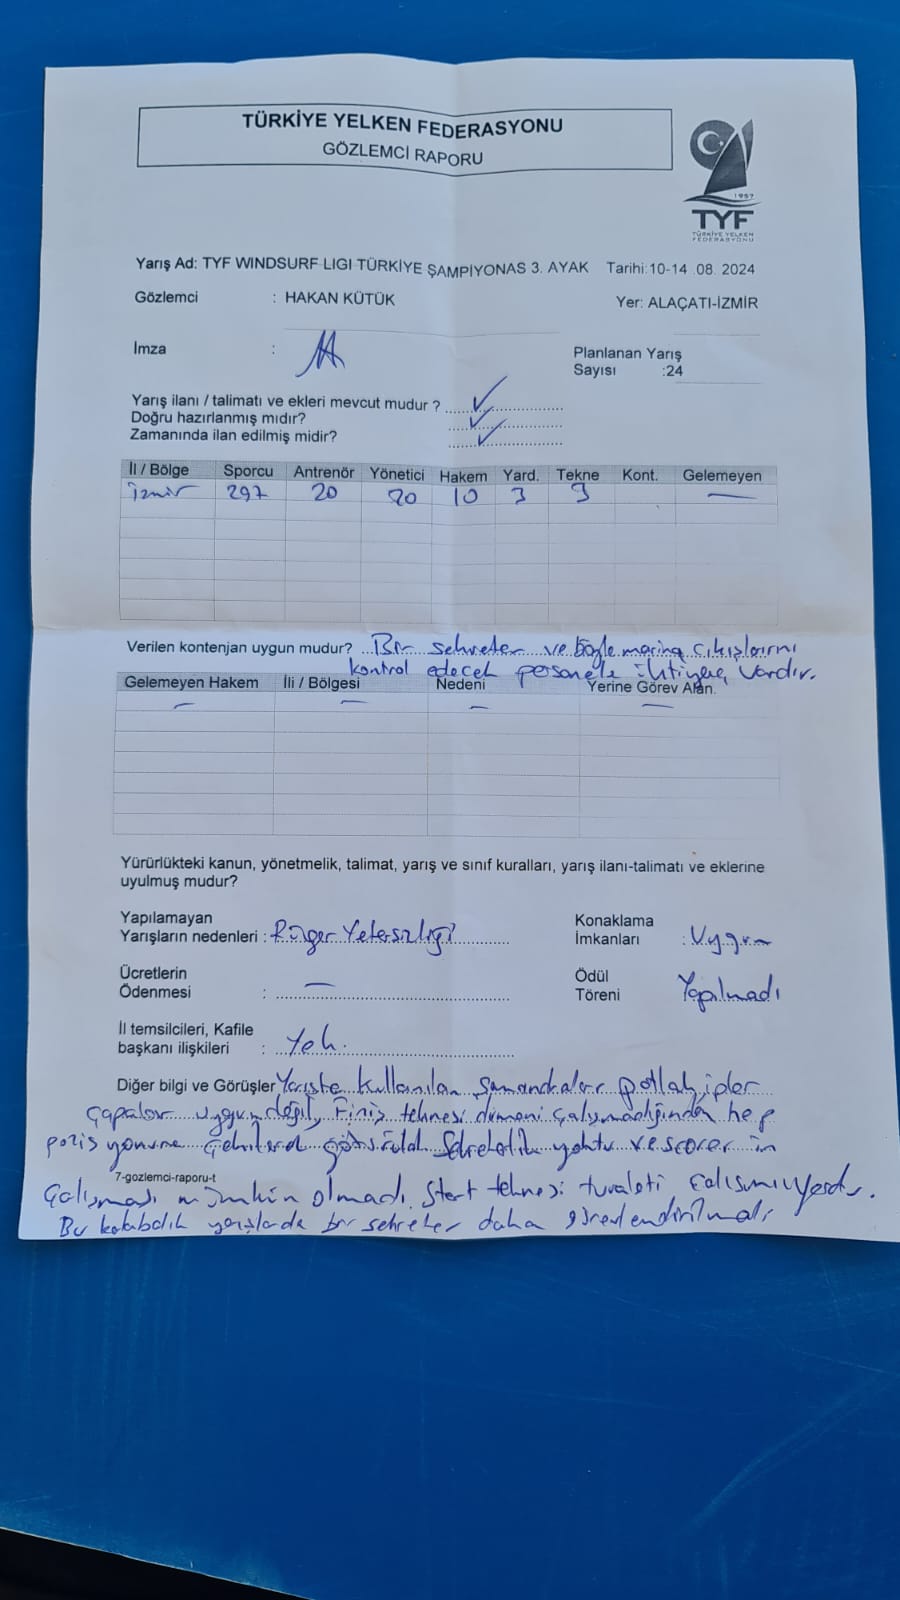 TÜRKİYE YELKEN FEDERASYONU
GÖZLEMCİ RAPORU
1957
TYF
TÜRKİYE YELKEN
FEDERASYONU
Yarış Ad: TYF WINDSURF LIGI TÜRKİYE ŞAMPİYONAS 3. AYAK Tarihi:10-14 .08. 2024
Gözlemci : HAKAN KÜTÜK Yer: ALAÇATI-İZMİR
İmza :
Planlanan Yarış
Sayısı :24
Yarış ilanı / talimatı ve ekleri mevcut mudur ? ✓
Doğru hazırlanmış mıdır? ✓
Zamanında ilan edilmiş midir? ✓
İl / Bölge Sporcu Antrenör Yönetici Hakem Yard. Tekne Kont. Gelemeyen
izmir 297 20 20 10 3 3 —
Verilen kontenjan uygun mudur? Bir sekreter ve böyle marina çıkışlarını
kontrol edecek personele ihtiyaç vardır.
Gelemeyen Hakem İli / Bölgesi Nedeni Yerine Görev Alan.
— — — —
Yürürlükteki kanun, yönetmelik, talimat, yarış ve sınıf kuralları, yarış ilanı-talimatı ve eklerine
uyulmuş mudur?
Yapılamayan
Yarışların nedenleri : Rüzger Yetersizliği
Konaklama
İmkanları : Uygun
Ücretlerin
Ödenmesi : —
Ödül
Töreni Yapılmadı
İl temsilcileri, Kafile
başkanı ilişkileri : Yok.
Diğer bilgi ve Görüşler Yarışta kullanılan şamandıralar patlak, ipler
çapalar uygun değil, Finiş teknesi dümeni çalışmadığından hep
pozisyonuna çekilerek götürüldü Sekreterlik yoktu ve scorer in
7-gozlemci-raporu-t
Çalışması mümkün olmadı. Start teknesi tuvaleti çalışmıyordu.
Bu kalabalık yarışlarda bir sekreter daha görevlendirilmeli